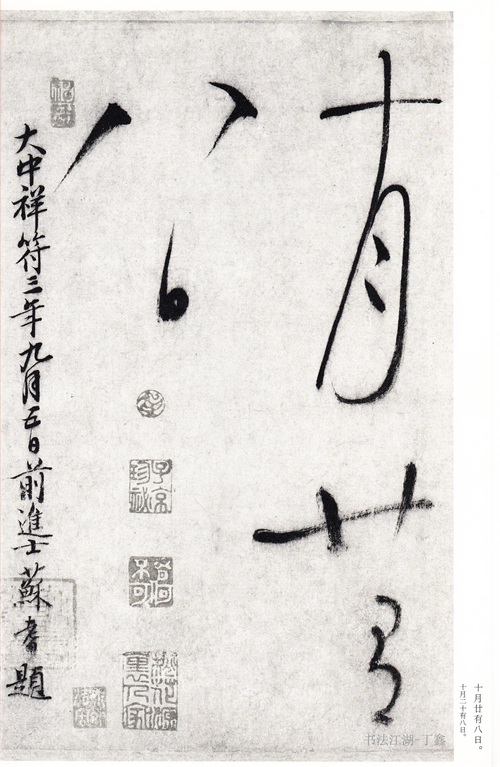 十月廿有
八日
大中祥符三年九月五日前進士蘇耆題
子京
珍秘
桃花源
裏人家
十月廿有八日。
十月二十有八日。
书法江湖-丁鑫